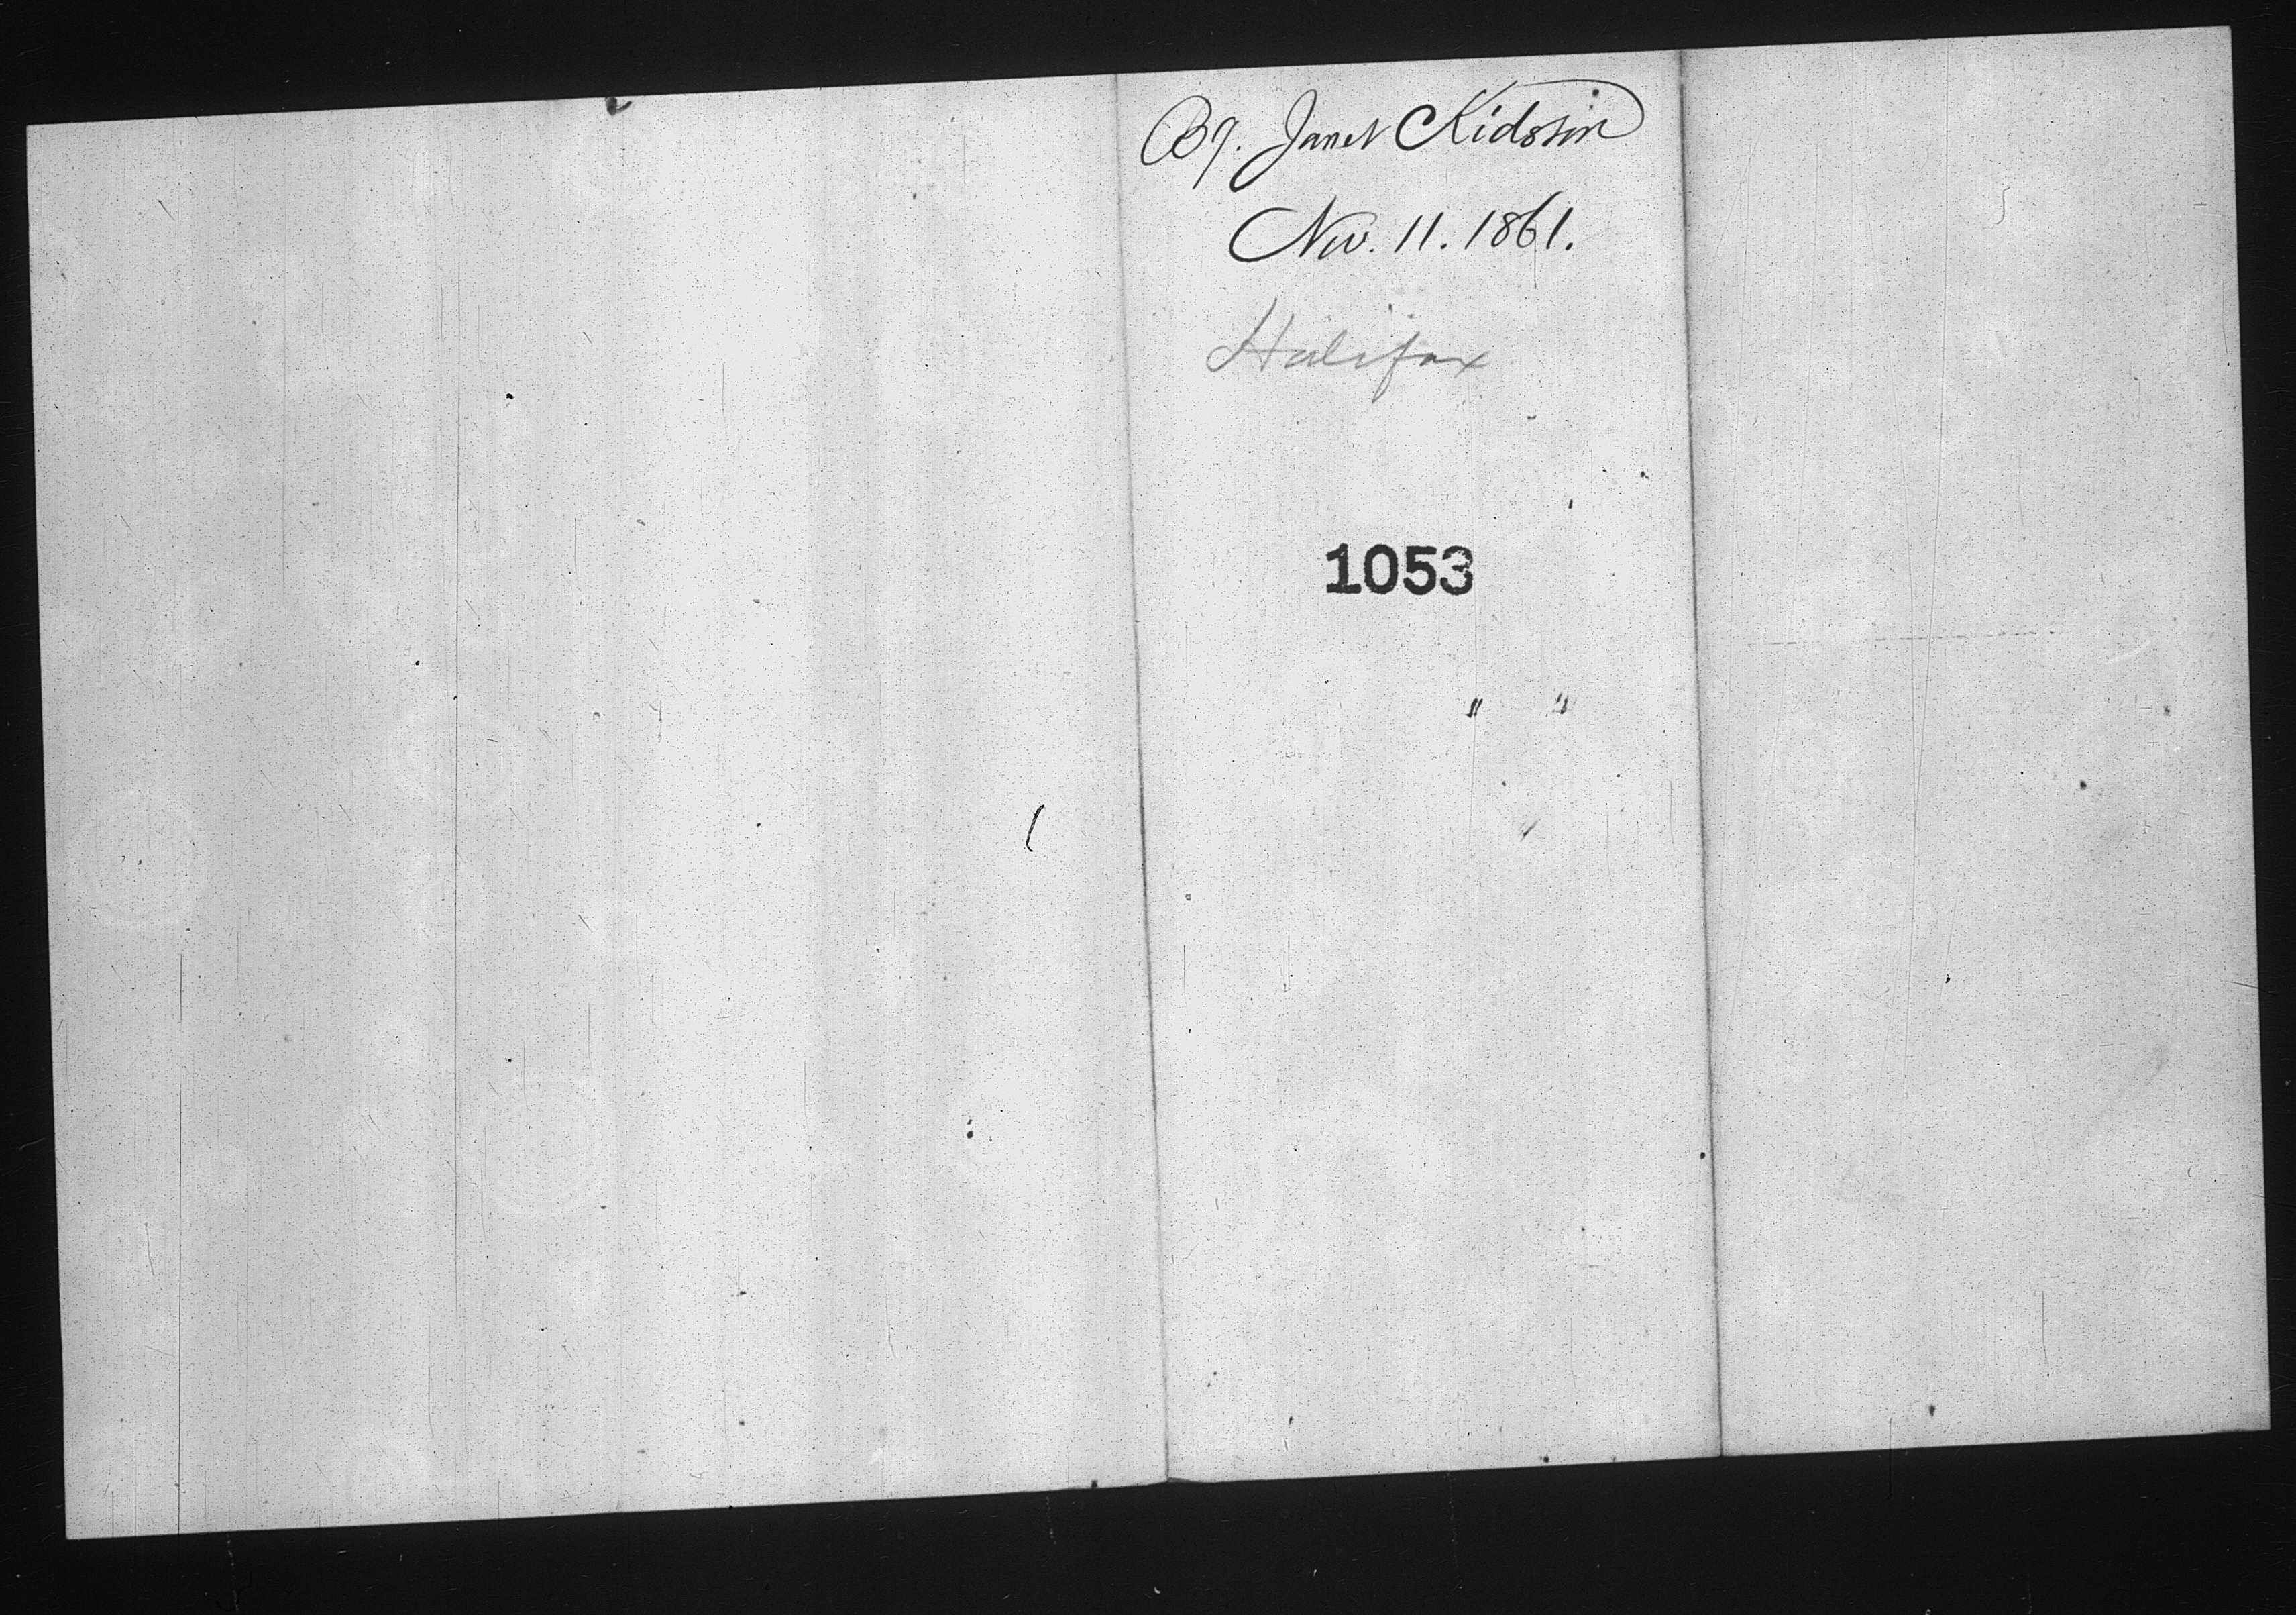 Bq. Janet Kidston
Nov. 11. 1861.
Halifax
1053
" "